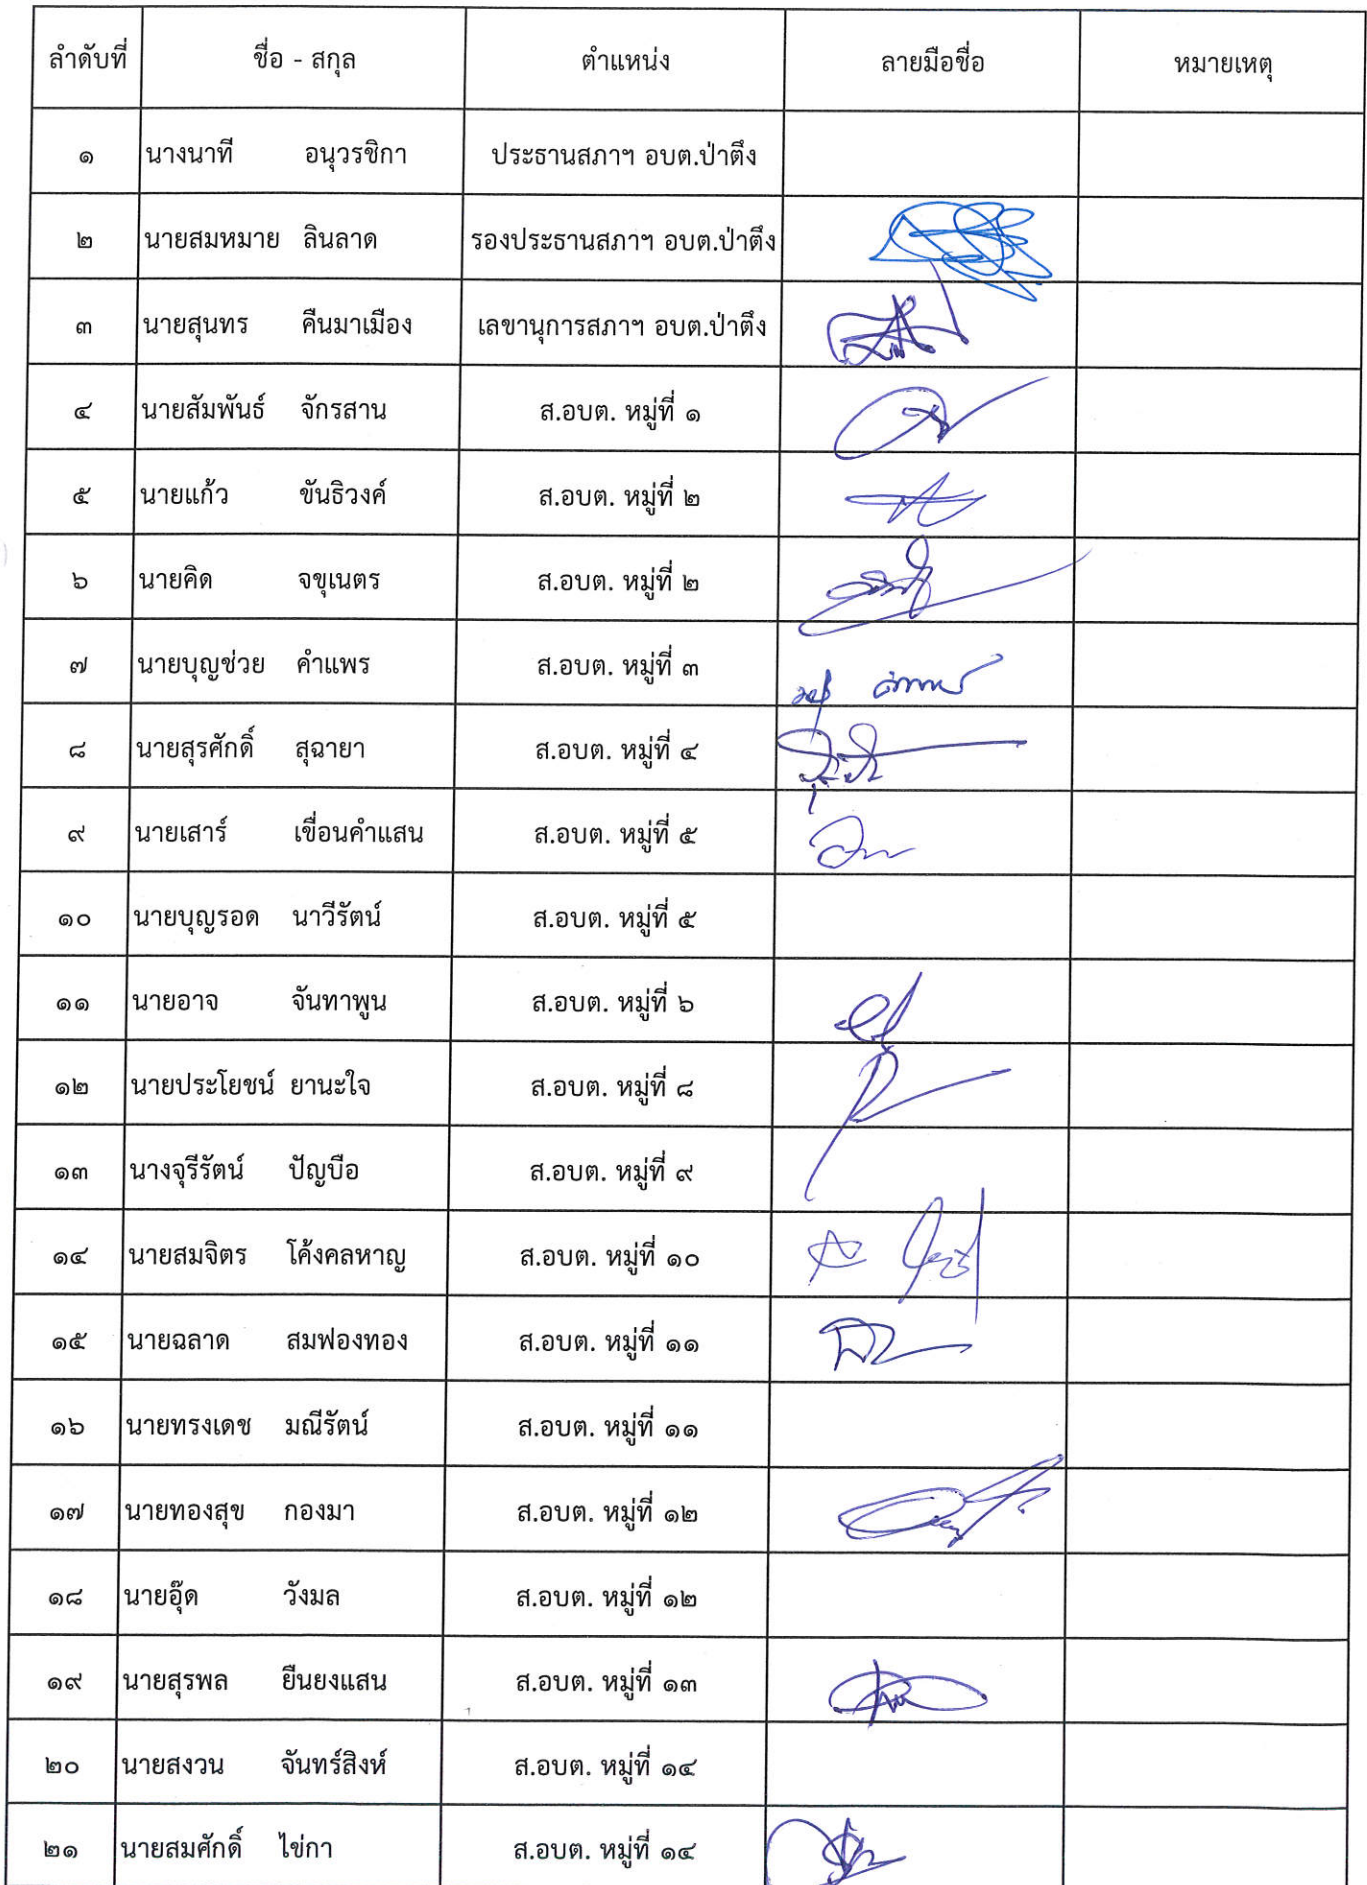 ลำดับที่ ชื่อ - สกุล ตำแหน่ง ลายมือชื่อ หมายเหตุ
๑ นางนาที อนุวรชิกา ประธานสภาฯ อบต.ป่าตึง
๒ นายสมหมาย ลินลาด รองประธานสภาฯ อบต.ป่าตึง
๓ นายสุนทร คืนมาเมือง เลขานุการสภาฯ อบต.ป่าตึง
๔ นายสัมพันธ์ จักรสาน ส.อบต. หมู่ที่ ๑
๕ นายแก้ว ขันธิวงค์ ส.อบต. หมู่ที่ ๒
๖ นายคิด จขุเนตร ส.อบต. หมู่ที่ ๒
๗ นายบุญช่วย คำแพร ส.อบต. หมู่ที่ ๓
๘ นายสุรศักดิ์ สุฉายา ส.อบต. หมู่ที่ ๔
๙ นายเสาร์ เขื่อนคำแสน ส.อบต. หมู่ที่ ๕
๑๐ นายบุญรอด นาวีรัตน์ ส.อบต. หมู่ที่ ๕
๑๑ นายอาจ จันทาพูน ส.อบต. หมู่ที่ ๖
๑๒ นายประโยชน์ ยานะใจ ส.อบต. หมู่ที่ ๘
๑๓ นางจุรีรัตน์ ปัญบือ ส.อบต. หมู่ที่ ๙
๑๔ นายสมจิตร โค้งคลหาญ ส.อบต. หมู่ที่ ๑๐
๑๕ นายฉลาด สมฟองทอง ส.อบต. หมู่ที่ ๑๑
๑๖ นายทรงเดช มณีรัตน์ ส.อบต. หมู่ที่ ๑๑
๑๗ นายทองสุข กองมา ส.อบต. หมู่ที่ ๑๒
๑๘ นายอุ๊ด วังมล ส.อบต. หมู่ที่ ๑๒
๑๙ นายสุรพล ยืนยงแสน ส.อบต. หมู่ที่ ๑๓
๒๐ นายสงวน จันทร์สิงห์ ส.อบต. หมู่ที่ ๑๔
๒๑ นายสมศักดิ์ ไข่กา ส.อบต. หมู่ที่ ๑๔